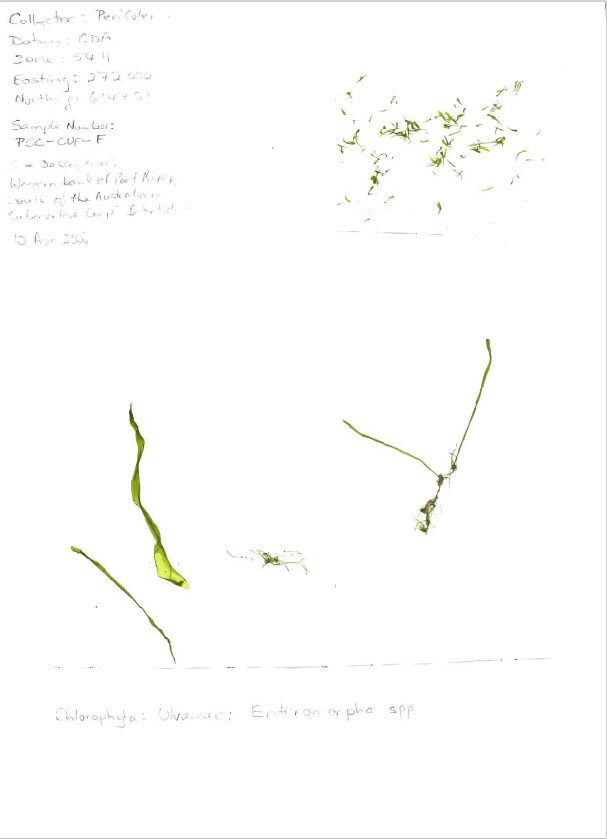 Collector: Pericoles
Datum: GDA
Zone: 54 H
Easting:
Northing:
Sample Number:
PSC-CUF-F
Western bank of Port River,
South of the Australian
Submarine Corp
10 Apr
Chlorophyta: Ulvaceae: Enteromorpha spp